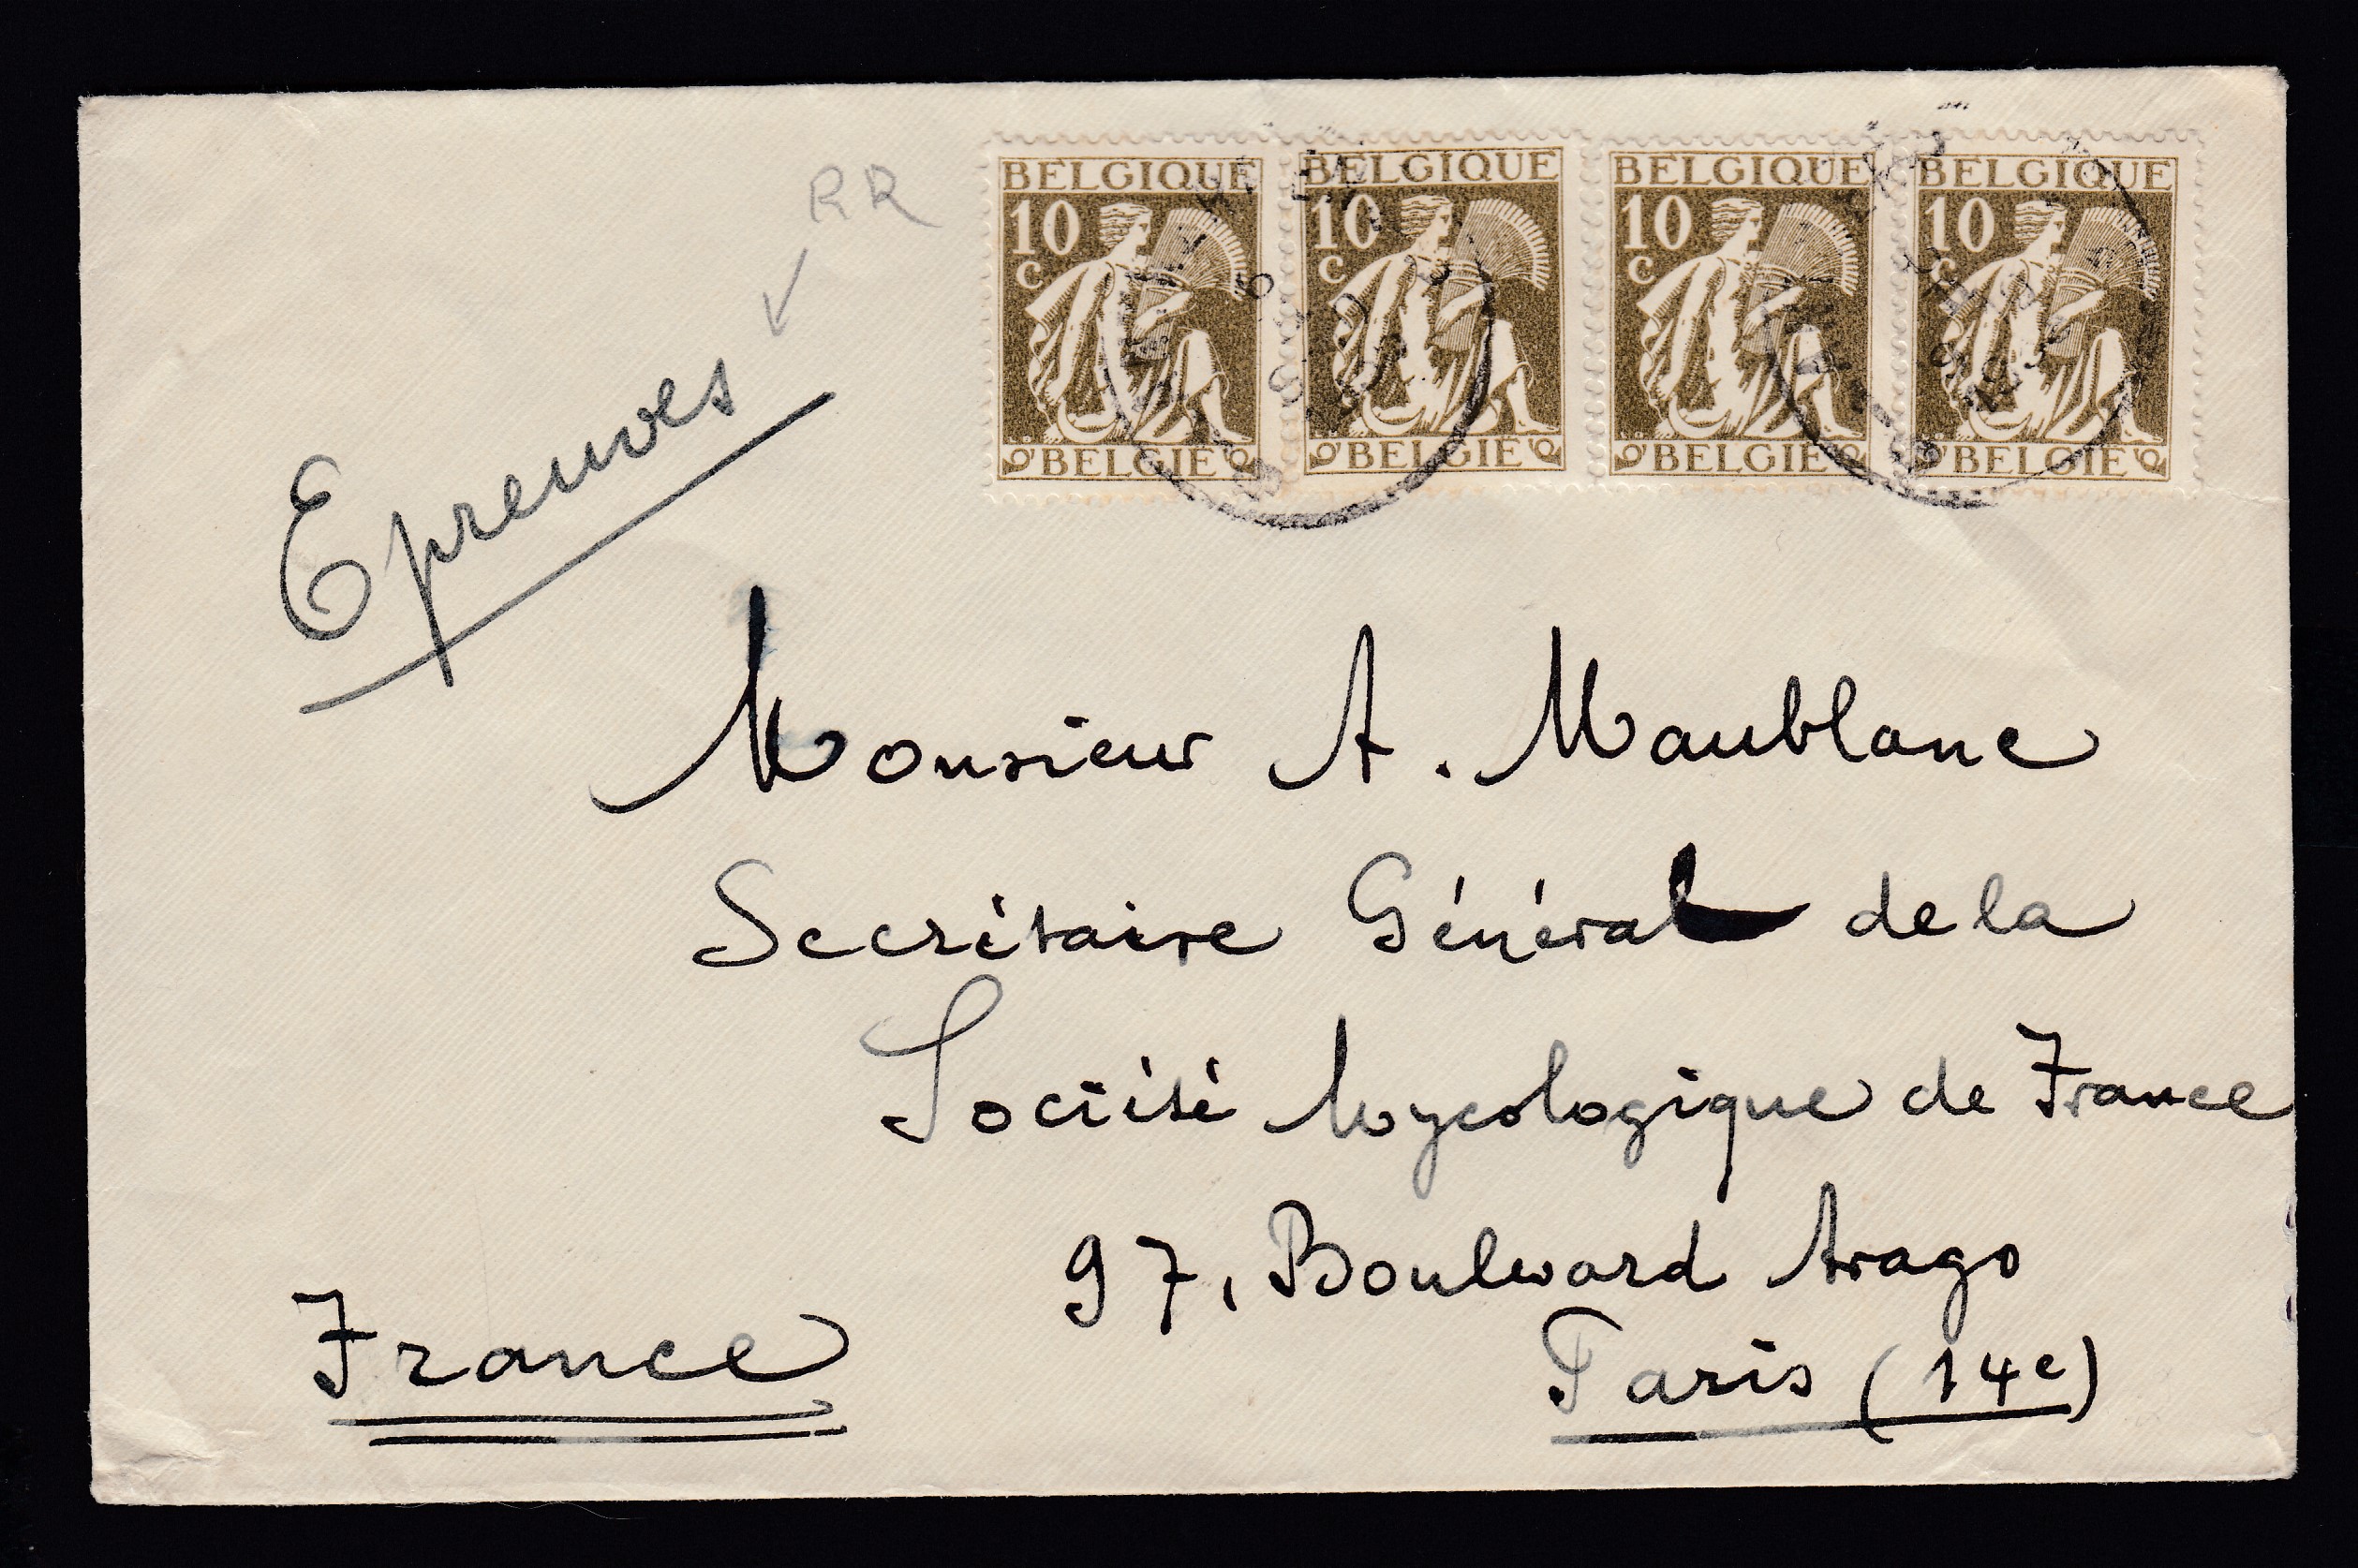 RR
BELGIQUE BELGIQUE BELGIQUE BELGIQUE
10 10 10 10
c c c c
BELGIË BELGIË BELGIË BELGIË
Epreuves
Monsieur A. Maublanc
Secrétaire Général de la
Société Mycologique de France
97, Boulevard Arago
Paris (14e)
France